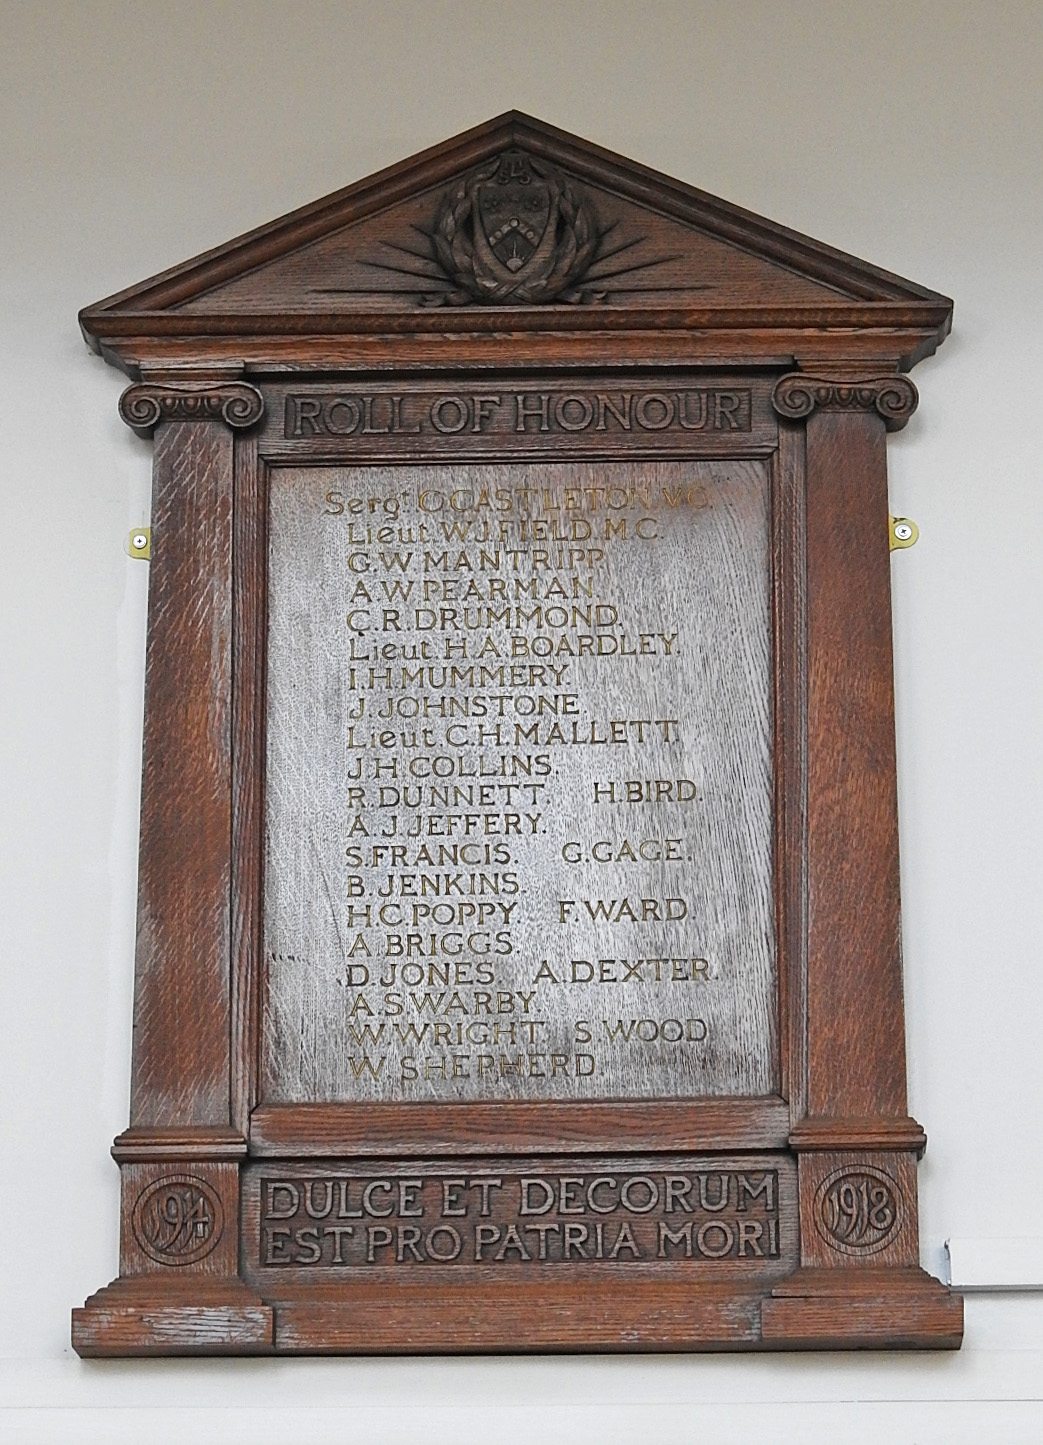 ROLL OF HONOUR
Sergt. C. CASTLETON. V.C.
Lieut. W.J. FIELD. M.C.
G.W. MANTRIPP.
A.W. PEARMAN.
C.R. DRUMMOND.
Lieut. H.A. BOARDLEY.
I.H. MUMMERY.
J. JOHNSTONE.
Lieut. C.H. MALLETT.
J.H. COLLINS.
R. DUNNETT. H. BIRD.
A.J. JEFFERY.
S. FRANCIS. G. GAGE.
B. JENKINS.
H.C. POPPY. F. WARD.
A. BRIGGS.
D. JONES. A. DEXTER.
A. SWARBY.
W. WRIGHT. S. WOOD.
W. SHEPHERD.
1914 DULCE ET DECORUM 1918
EST PRO PATRIA MORI